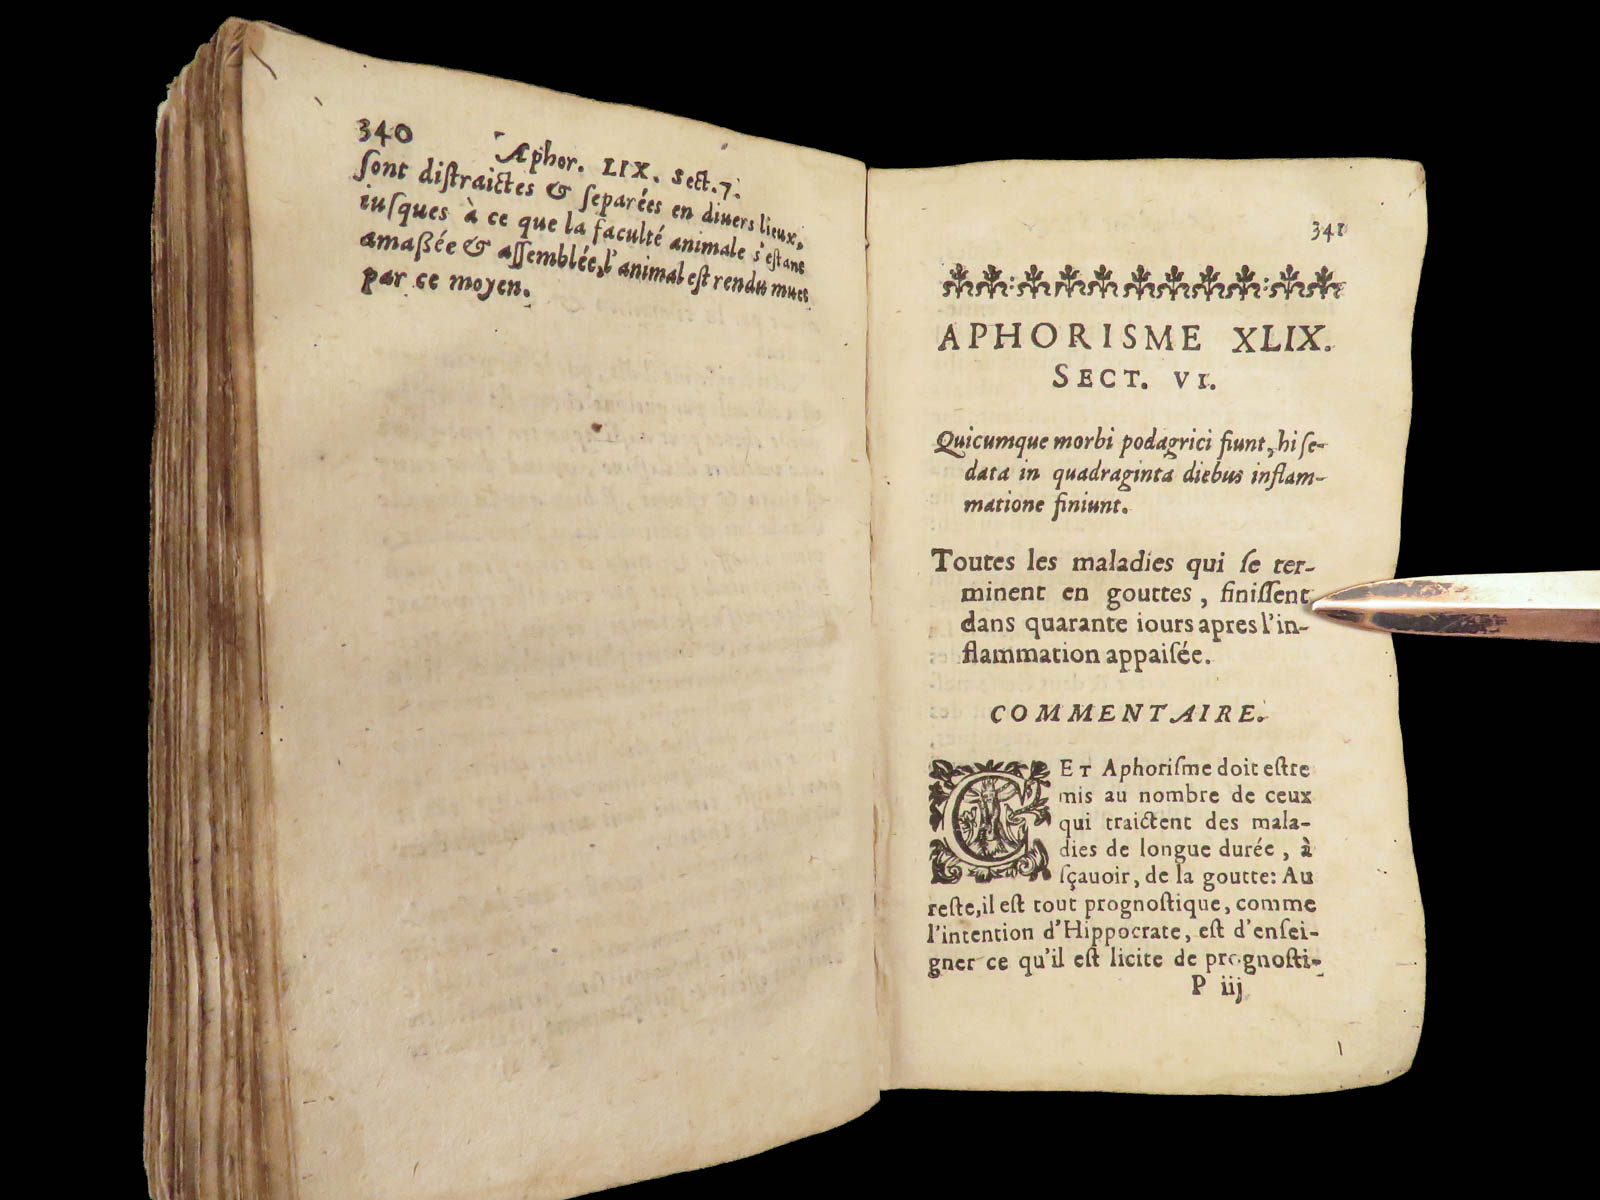 340
Aphor. LIX. Sect. 7.
ſont diſtraictes & ſeparées en diuers lieux,
iuſques à ce que la faculté animale s'eſtant
amaßée & aſſemblée, l'animal eſt rendu muet
par ce moyen.
341
APHORISME XLIX.
SECT. VI.
Quicumque morbi podagrici fiunt, hi ſe-
data in quadraginta diebus inflam-
matione finiunt.
Toutes les maladies qui ſe ter-
minent en gouttes, finiſſent
dans quarante iours apres l'in-
flammation appaiſée.
COMMENTAIRE.
CET Aphoriſme doit eſtre
mis au nombre de ceux
qui traictent des mala-
dies de longue durée, à
ſçauoir, de la goutte: Au
reſte, il eſt tout prognoſtique, comme
l'intention d'Hippocrate, eſt d'enſei-
gner ce qu'il eſt licite de prognoſti-
P iij